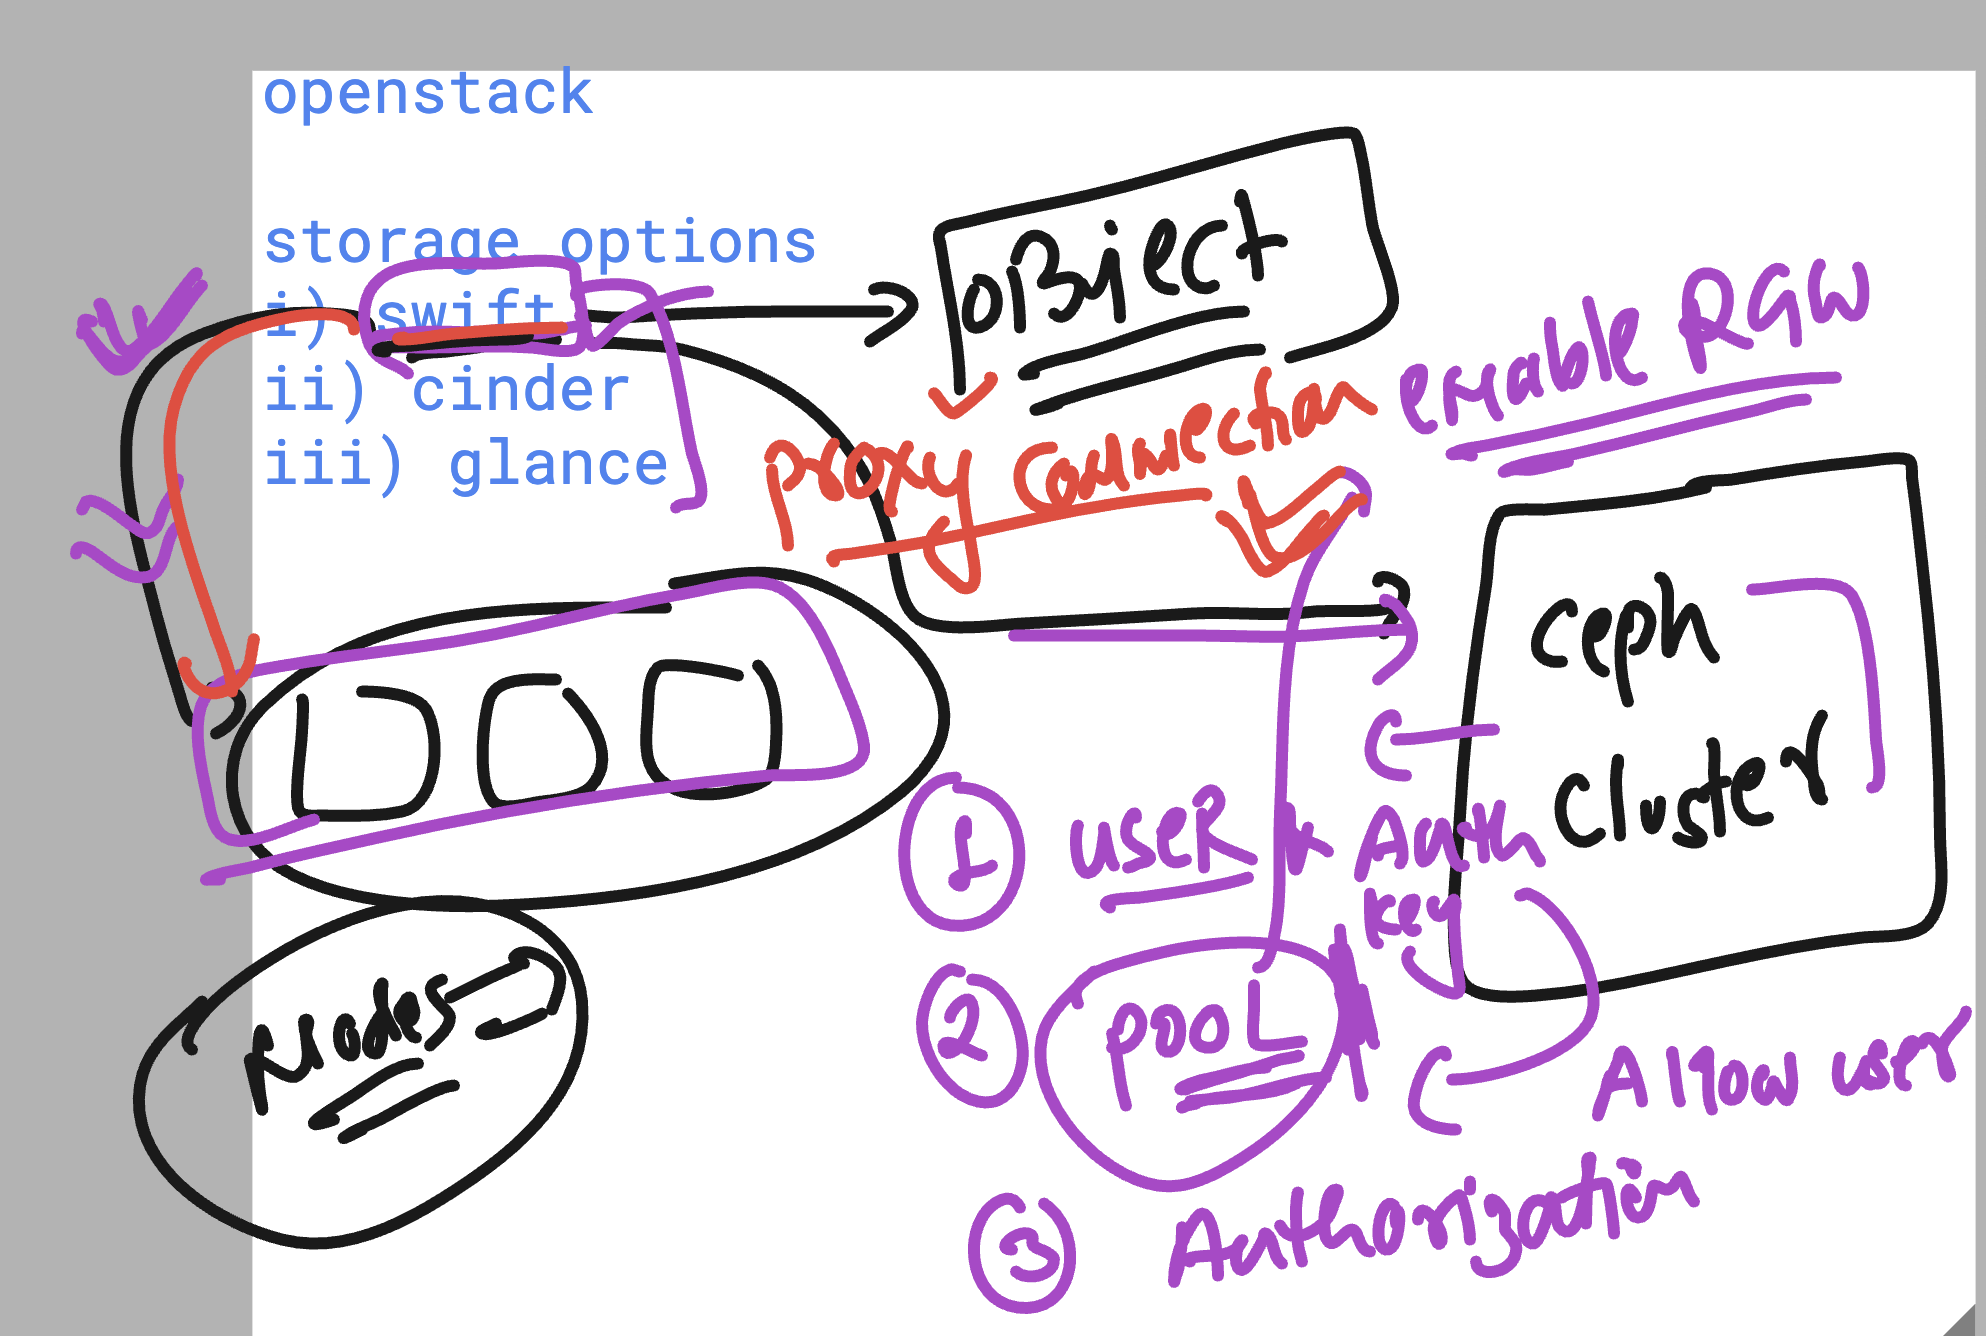 openstack
storage options
i) swift
ii) cinder
iii) glance
oBject
proxy connection
enable RGW
ceph
cluster
Nodes
1 useR + Auth
key
2 pooL
Allow user
3 Authorization